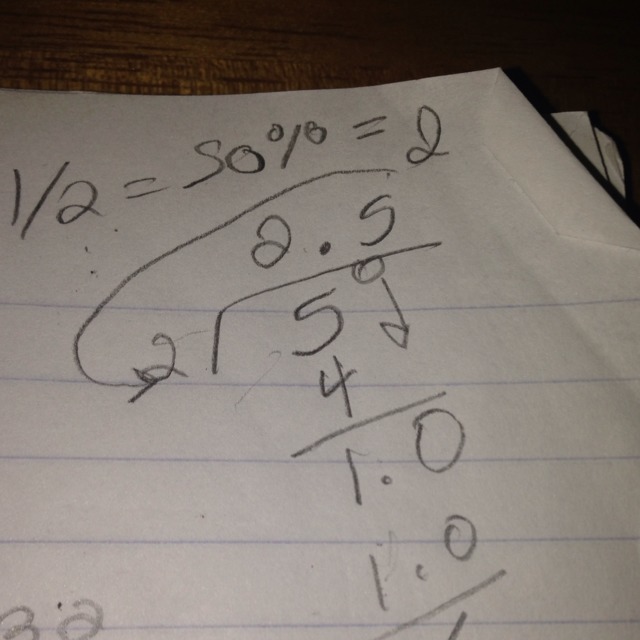 1/2 = 50% = 2
2.5
2 5 0
4
1.0
1.0